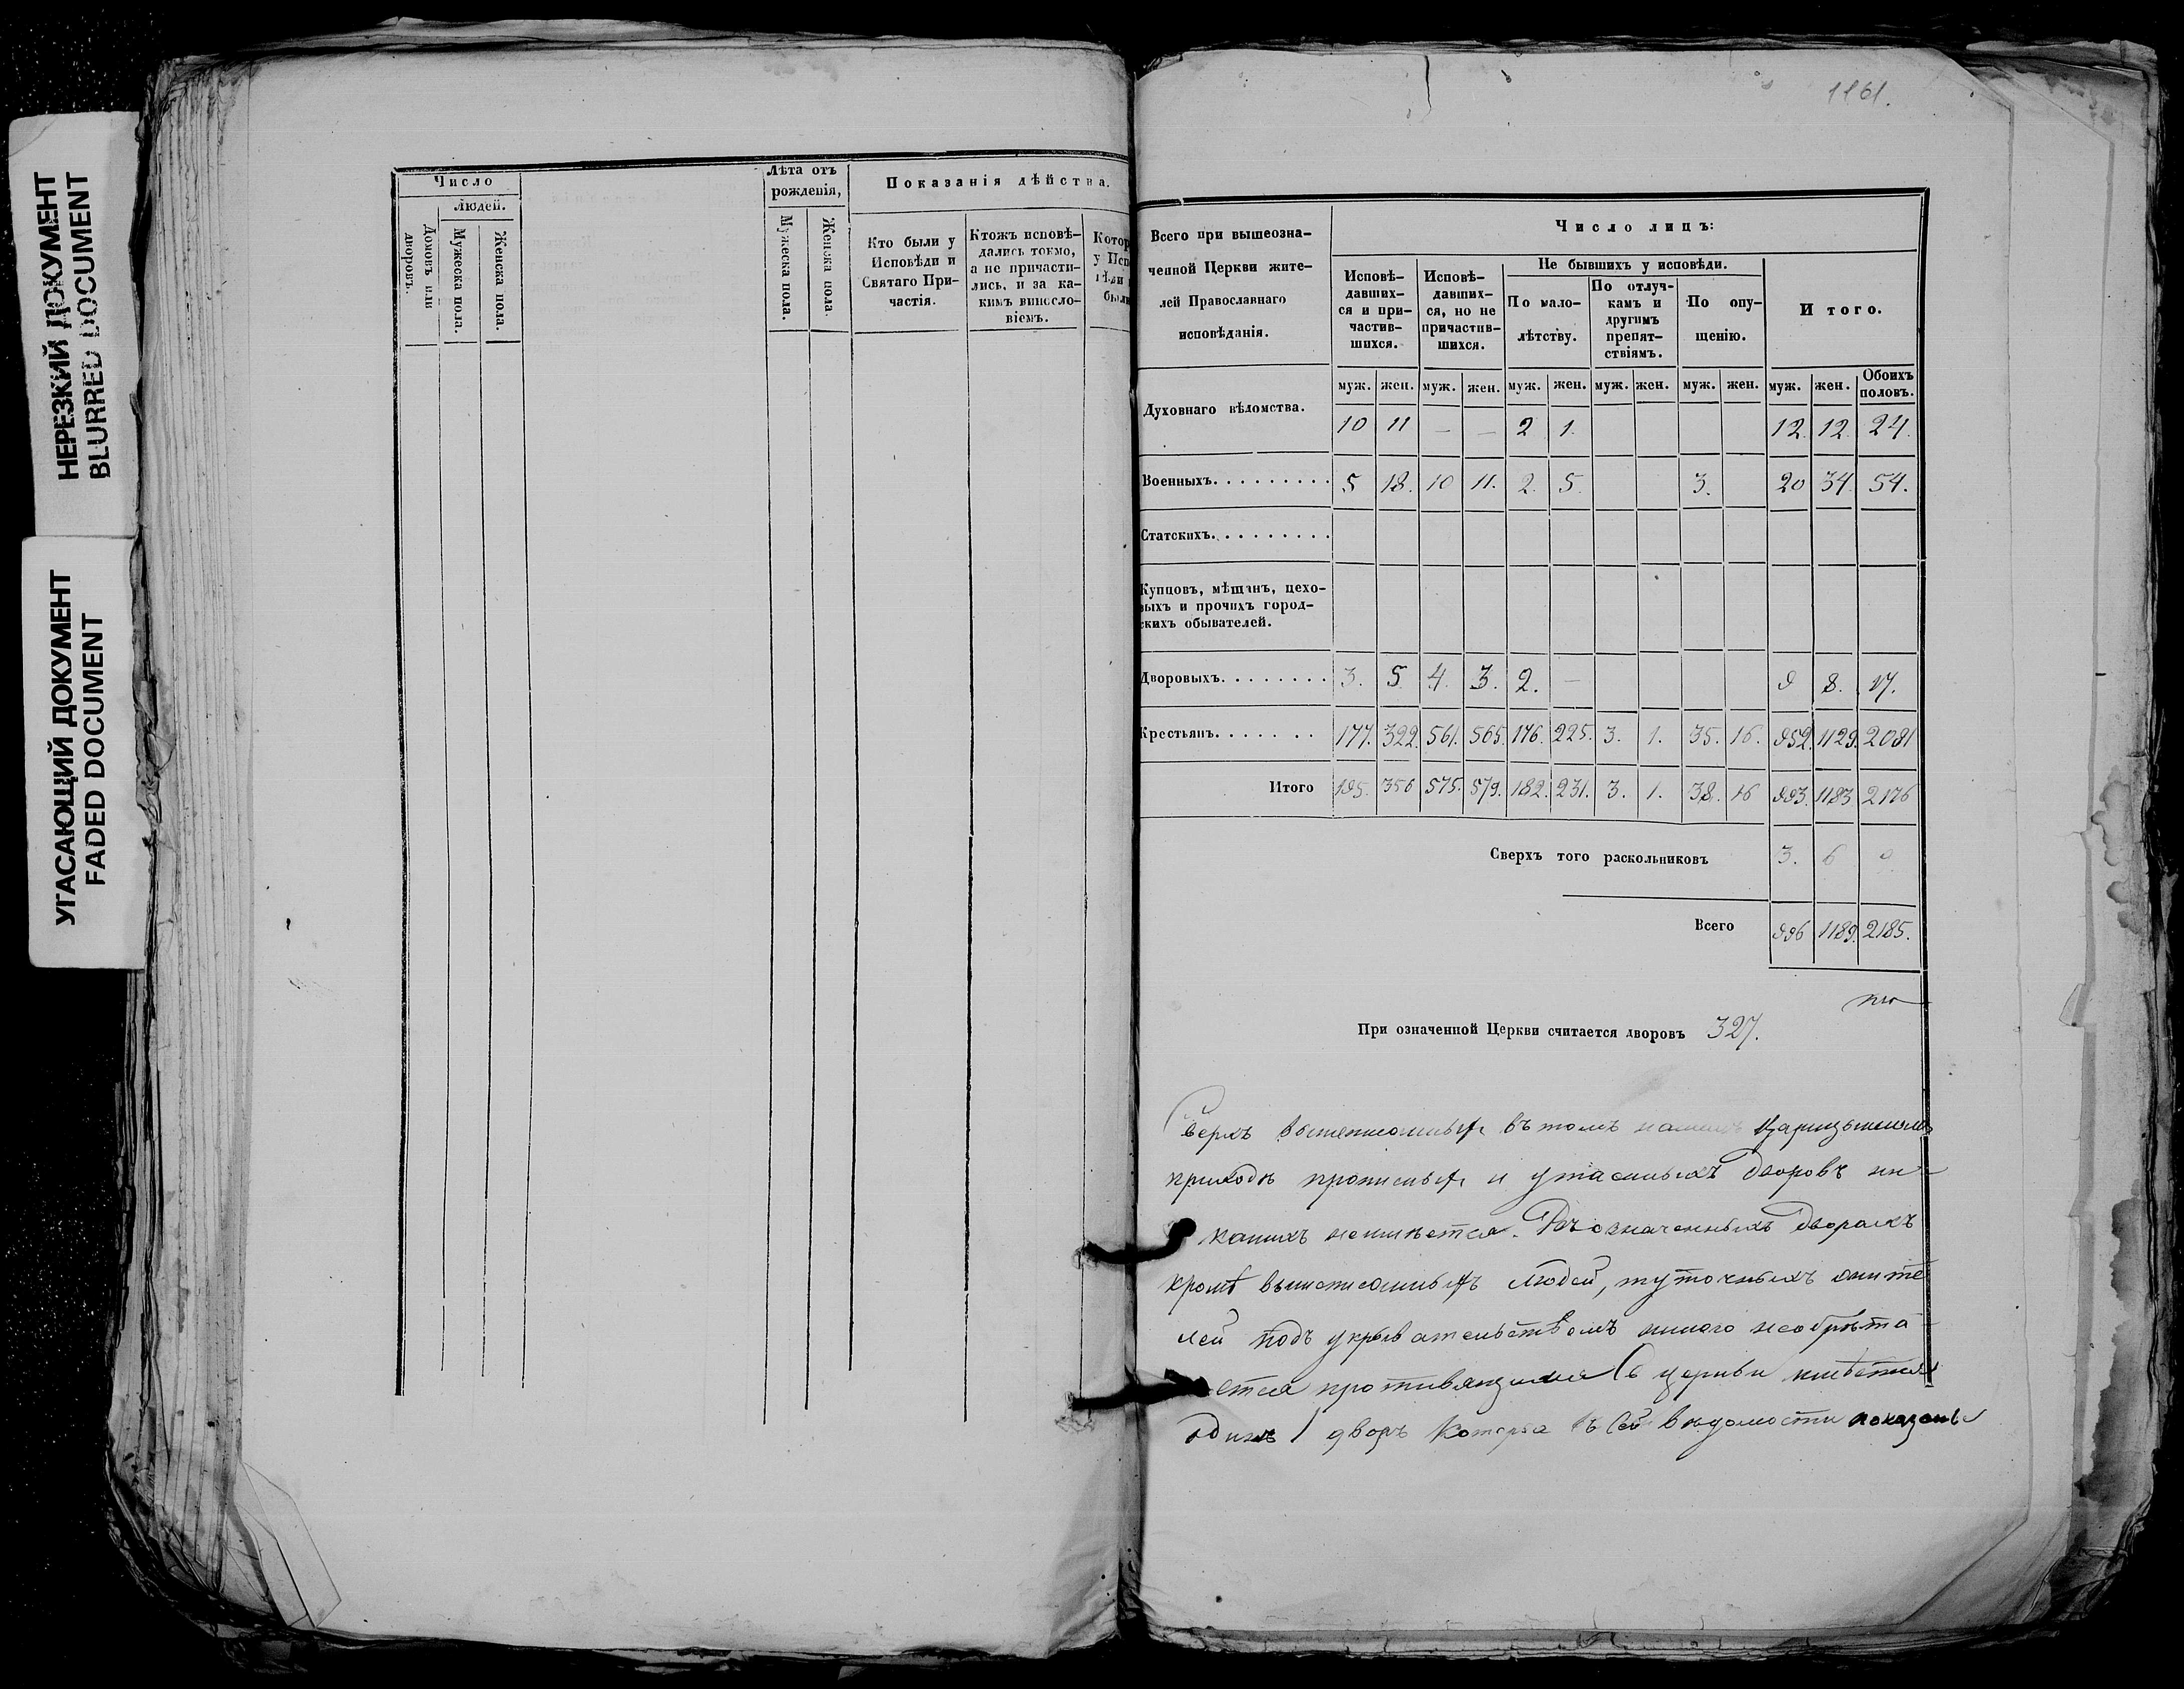 НЕРЕЗКИЙ ДОКУМЕНТ
BLURRED DOCUMENT
УГАСАЮЩИЙ ДОКУМЕНТ
FADED DOCUMENT
Число
Людей.
Домовъ или дворовъ.
Мужеска пола.
Женска пола.
Лѣта отъ рожденія,
Мужеска пола.
Женска пола.
Показанія дѣйства.
Кто были у
Исповѣди и
Святаго При-
частія.
Ктожъ исповѣ-
дались токмо,
а не причасти-
лись, и за ка-
кимъ винсло-
віемъ.
Котор
у Исп
1161.
Всего при вышеозна-
ченной Церкви жите-
лей Православнаго
исповѣданія.
Число лицъ:
Исповѣ-
давших-
ся и при-
частив-
шихся.
Исповѣ-
давших-
ся, но не
причастив-
шихся.
Не бывшихъ у исповѣди.
По мало-
лѣтству.
По отлуч-
камъ и
другимъ
препят-
ствіямъ.
По опу-
щенію.
Итого.
муж. жен. муж. жен. муж. жен. муж. жен. муж. жен. муж. жен. Обоихъ половъ.
Духовнаго вѣдомства. 10 11 — — 2 1. 12. 12. 24.
Военныхъ. . . . . . . . . 5 18. 10 11. 2. 5. 3. 20 34. 54.
Статскихъ. . . . . . . . .
Купцовъ, мѣщанъ, цехо-
выхъ и прочихъ город-
скихъ обывателей.
Дворовыхъ. . . . . . . . 3. 5. 4. 3. 2. — 9 8. 17.
Крестьянъ. . . . . . . 177. 322. 561. 565. 176. 225. 3. 1. 35. 16. 952. 1129. 2081
Итого 195. 356 575. 579. 182. 231. 3. 1. 38. 16 993. 1183 2176
Сверхъ того раскольниковъ 3. 6 9
Всего 996 1189. 2185.
При означенной Церкви считается дворовъ 327.
Сверхъ въ томъ
приходѣ прописныхъ и утаенныхъ дворовъ ни
какихъ неимѣется. Въ означенныхъ дворахъ
кромѣ вышеписанныхъ людей, туточныхъ жите
лей подъ укрывательствомъ никого необрѣта
ется противящихся Св церкви имѣется
одинъ 1 дворъ въ сей вѣдомости показаны